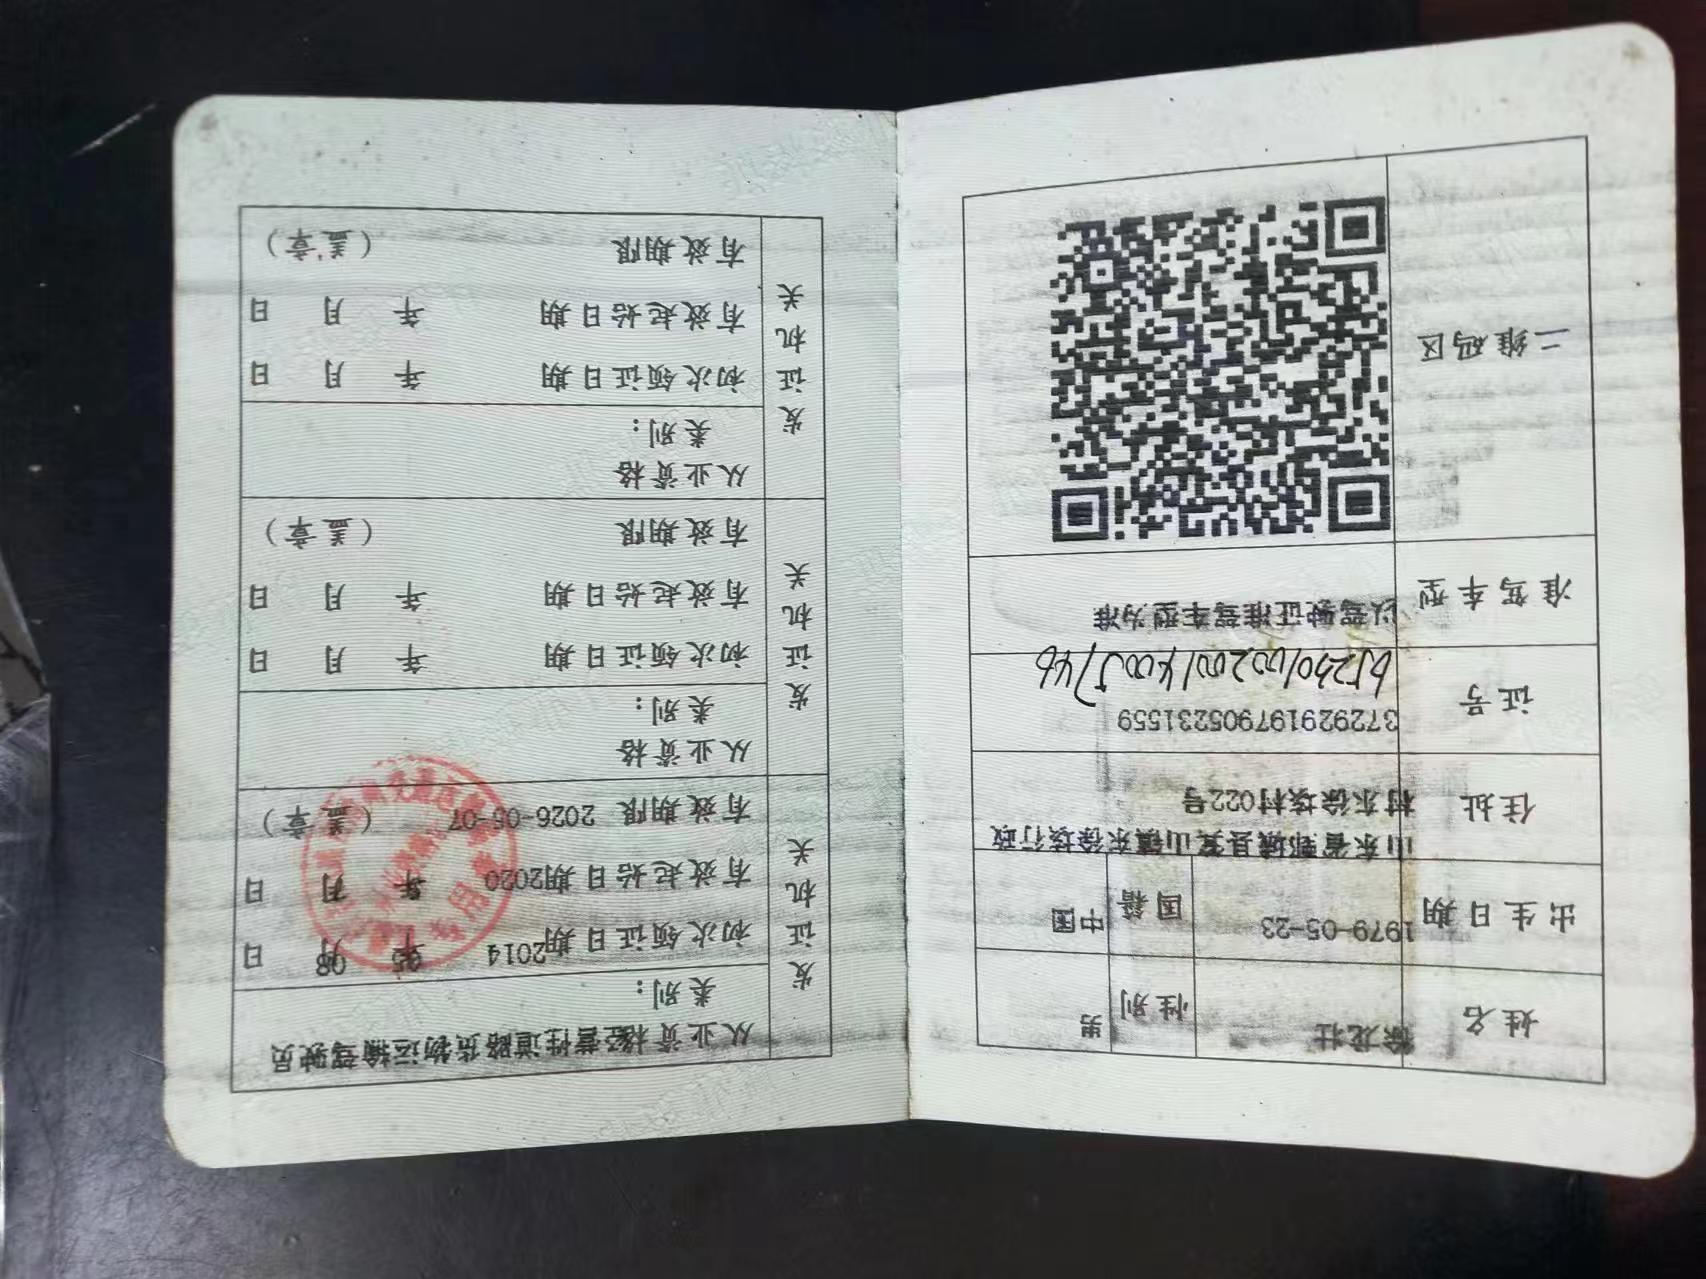 姓名 徐龙壮 性别 男
出生日期 1979-05-23 国籍 中国
住址 山东省鄄城县箕山镇东徐垓行政
村东徐垓村022号
证号 372929197905231559
准驾车型 以驾驶证准驾车型为准
二维码区
发证机关
从业资格 经营性道路货物运输驾驶员
类别：
初次领证日期 2014 年 05 月 08 日
有效起始日期 2020 年 月 日
有效期限 2026-05-07 （盖章）
发证机关
从业资格
类别：
初次领证日期 年 月 日
有效起始日期 年 月 日
有效期限 （盖章）
发证机关
从业资格
类别：
初次领证日期 年 月 日
有效起始日期 年 月 日
有效期限 （盖章）